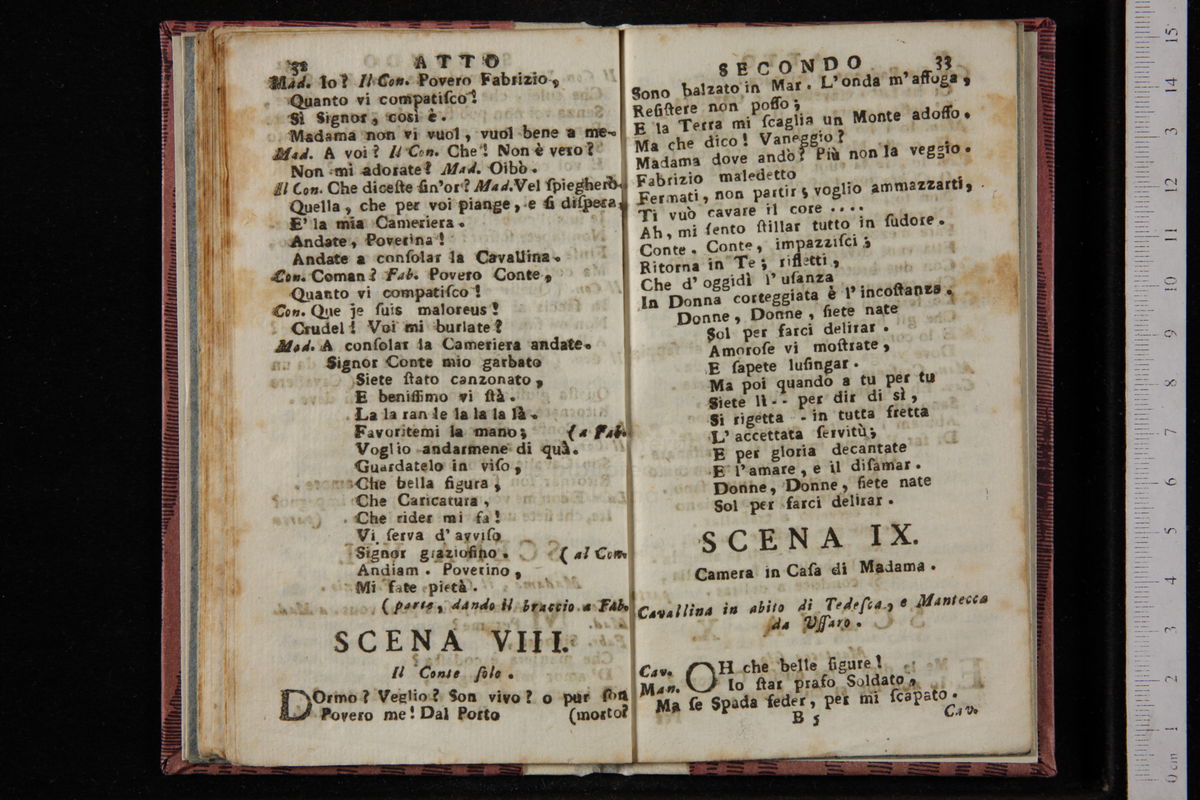 32 ATTO
Mad. Io? Il Con. Povero Fabrizio,
Quanto vi compatiſco!
Sì Signor, così è.
Madama non vi vuol, vuol bene a me.
Mad. A voi? Il Con. Che! Non è vero?
Non mi adorate? Mad. Oibò.
Il Con. Che diceſte ſin'or? Mad. Vel ſpiegherò.
Quella, che per voi piange, e ſi diſpera,
E' la mia Cameriera.
Andate, Poverina!
Andate a conſolar la Cavallina.
Con. Coman? Fab. Povero Conte,
Quanto vi compatiſco!
Con. Que je ſuis maloreus!
Crudel! Voi mi burlate?
Mad. A conſolar la Cameriera andate.
Signor Conte mio garbato
Siete ſtato canzonato,
E beniſſimo vi ſtà.
La la ran le la la la là.
Favoritemi la mano; (a Fab.
Voglio andarmene di quà.
Guardatelo in viſo,
Che bella figura,
Che Caricatura,
Che rider mi fa!
Vi ſerva d'avviſo
Signor grazioſino. (al Con.
Andiam. Poverino,
Mi fate pietà.
(parte, dando il braccio a Fab.
SCENA VIII.
Il Conte ſolo.
DOrmo? Veglio? Son vivo? o pur ſon
Povero me! Dal Porto (morto?
SECONDO 33
Sono balzato in Mar. L'onda m'affoga,
Reſiſtere non poſſo;
E la Terra mi ſcaglia un Monte adoſſo.
Ma che dico! Vaneggio?
Madama dove andò? Più non la veggio.
Fabrizio maledetto
Fermati, non partir; voglio ammazzarti,
Ti vuò cavare il core ....
Ah, mi ſento ſtillar tutto in ſudore.
Conte. Conte, impazziſci;
Ritorna in Te; rifletti,
Che d'oggidì l'uſanza
In Donna corteggiata è l'incoſtanza.
Donne, Donne, ſiete nate
Sol per farci delirar.
Amoroſe vi moſtrate,
E ſapete luſingar.
Ma poi quando a tu per tu
Siete lì -- per dir di sì,
Si rigetta -- in tutta fretta
L'accettata ſervitù;
E per gloria decantate
E l'amare, e il diſamar.
Donne, Donne, ſiete nate
Sol per farci delirar.
SCENA IX.
Camera in Caſa di Madama.
Cavallina in abito di Tedeſca, e Mantecca
da Uſſaro.
Cav. OH che belle figure!
Man. Io ſtar praſo Soldato,
Ma ſe Spada ſeder, per mi ſcapato.
B 5 Cav.